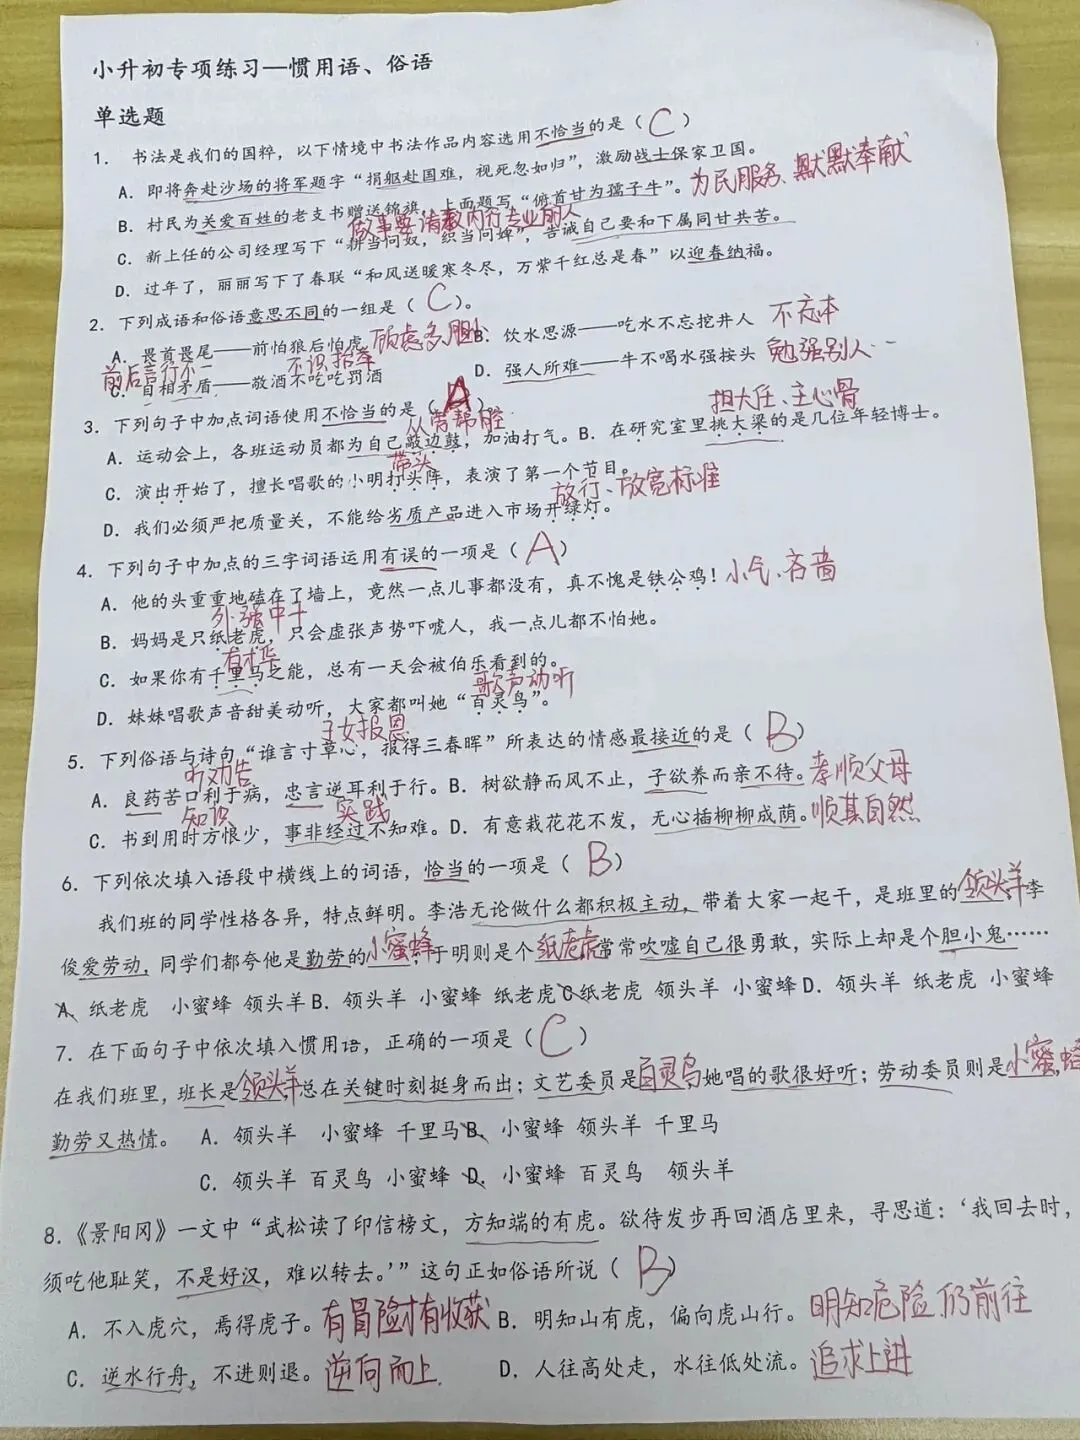 小升初专项练习—惯用语、俗语
单选题
1. 书法是我们的国粹，以下情境中书法作品内容选用不恰当的是（ C ）
A. 即将奔赴沙场的将军题字“捐躯赴国难，视死忽如归”，激励战士保家卫国。
B. 村民为关爱百姓的老支书赠送锦旗，上面题写“俯首甘为孺子牛”。为民服务、默默奉献
做事要请教内行专业的人
C. 新上任的公司经理写下“耕当问奴，织当问婢”，告诫自己要和下属同甘共苦。
D. 过年了，丽丽写下了春联“和风送暖寒冬尽，万紫千红总是春”以迎春纳福。
2. 下列成语和俗语意思不同的一组是（ C ）。
A. 畏首畏尾——前怕狼后怕虎 顾虑多，胆小 B. 饮水思源——吃水不忘挖井人 不忘本
前后言行不一 不识抬举
C. 自相矛盾——敬酒不吃吃罚酒 D. 强人所难——牛不喝水强按头 勉强别人…
3. 下列句子中加点词语使用不恰当的是（ A ）。
从旁帮腔 担大任、主心骨
A. 运动会上，各班运动员都为自己敲边鼓，加油打气。B. 在研究室里挑大梁的是几位年轻博士。
带头
C. 演出开始了，擅长唱歌的小明打头阵，表演了第一个节目。
放行、放宽标准
D. 我们必须严把质量关，不能给劣质产品进入市场开绿灯。
4. 下列句子中加点的三字词语运用有误的一项是（ A ）
A. 他的头重重地磕在了墙上，竟然一点儿事都没有，真不愧是铁公鸡！小气、吝啬
外强中干
B. 妈妈是只纸老虎，只会虚张声势吓唬人，我一点儿都不怕她。
有才华
C. 如果你有千里马之能，总有一天会被伯乐看到的。
歌声动听
D. 妹妹唱歌声音甜美动听，大家都叫她“百灵鸟”。
子女报恩
5. 下列俗语与诗句“谁言寸草心，报得三春晖”所表达的情感最接近的是（ B ）
听劝告
A. 良药苦口利于病，忠言逆耳利于行。B. 树欲静而风不止，子欲养而亲不待。孝顺父母
知识 实践
C. 书到用时方恨少，事非经过不知难。D. 有意栽花花不发，无心插柳柳成荫。顺其自然
6. 下列依次填入语段中横线上的词语，恰当的一项是（ B ）
我们班的同学性格各异，特点鲜明。李浩无论做什么都积极主动，带着大家一起干，是班里的领头羊李
俊爱劳动，同学们都夸他是勤劳的小蜜蜂，于明则是个纸老虎常常吹嘘自己很勇敢，实际上却是个胆小鬼……
A. 纸老虎 小蜜蜂 领头羊 B. 领头羊 小蜜蜂 纸老虎 C. 纸老虎 领头羊 小蜜蜂 D. 领头羊 纸老虎 小蜜蜂
7. 在下面句子中依次填入惯用语，正确的一项是（ C ）
在我们班里，班长是领头羊总在关键时刻挺身而出；文艺委员是百灵鸟她唱的歌很好听；劳动委员则是小蜜蜂
勤劳又热情。 A. 领头羊 小蜜蜂 千里马 B. 小蜜蜂 领头羊 千里马
C. 领头羊 百灵鸟 小蜜蜂 D. 小蜜蜂 百灵鸟 领头羊
8.《景阳冈》一文中“武松读了印信榜文，方知端的有虎。欲待发步再回酒店里来，寻思道：‘我回去时，
须吃他耻笑，不是好汉，难以转去。’”这句正如俗语所说（ B ）
A. 不入虎穴，焉得虎子。有冒险才有收获 B. 明知山有虎，偏向虎山行。明知危险，仍前往
C. 逆水行舟，不进则退。逆向而上 D. 人往高处走，水往低处流。追求上进